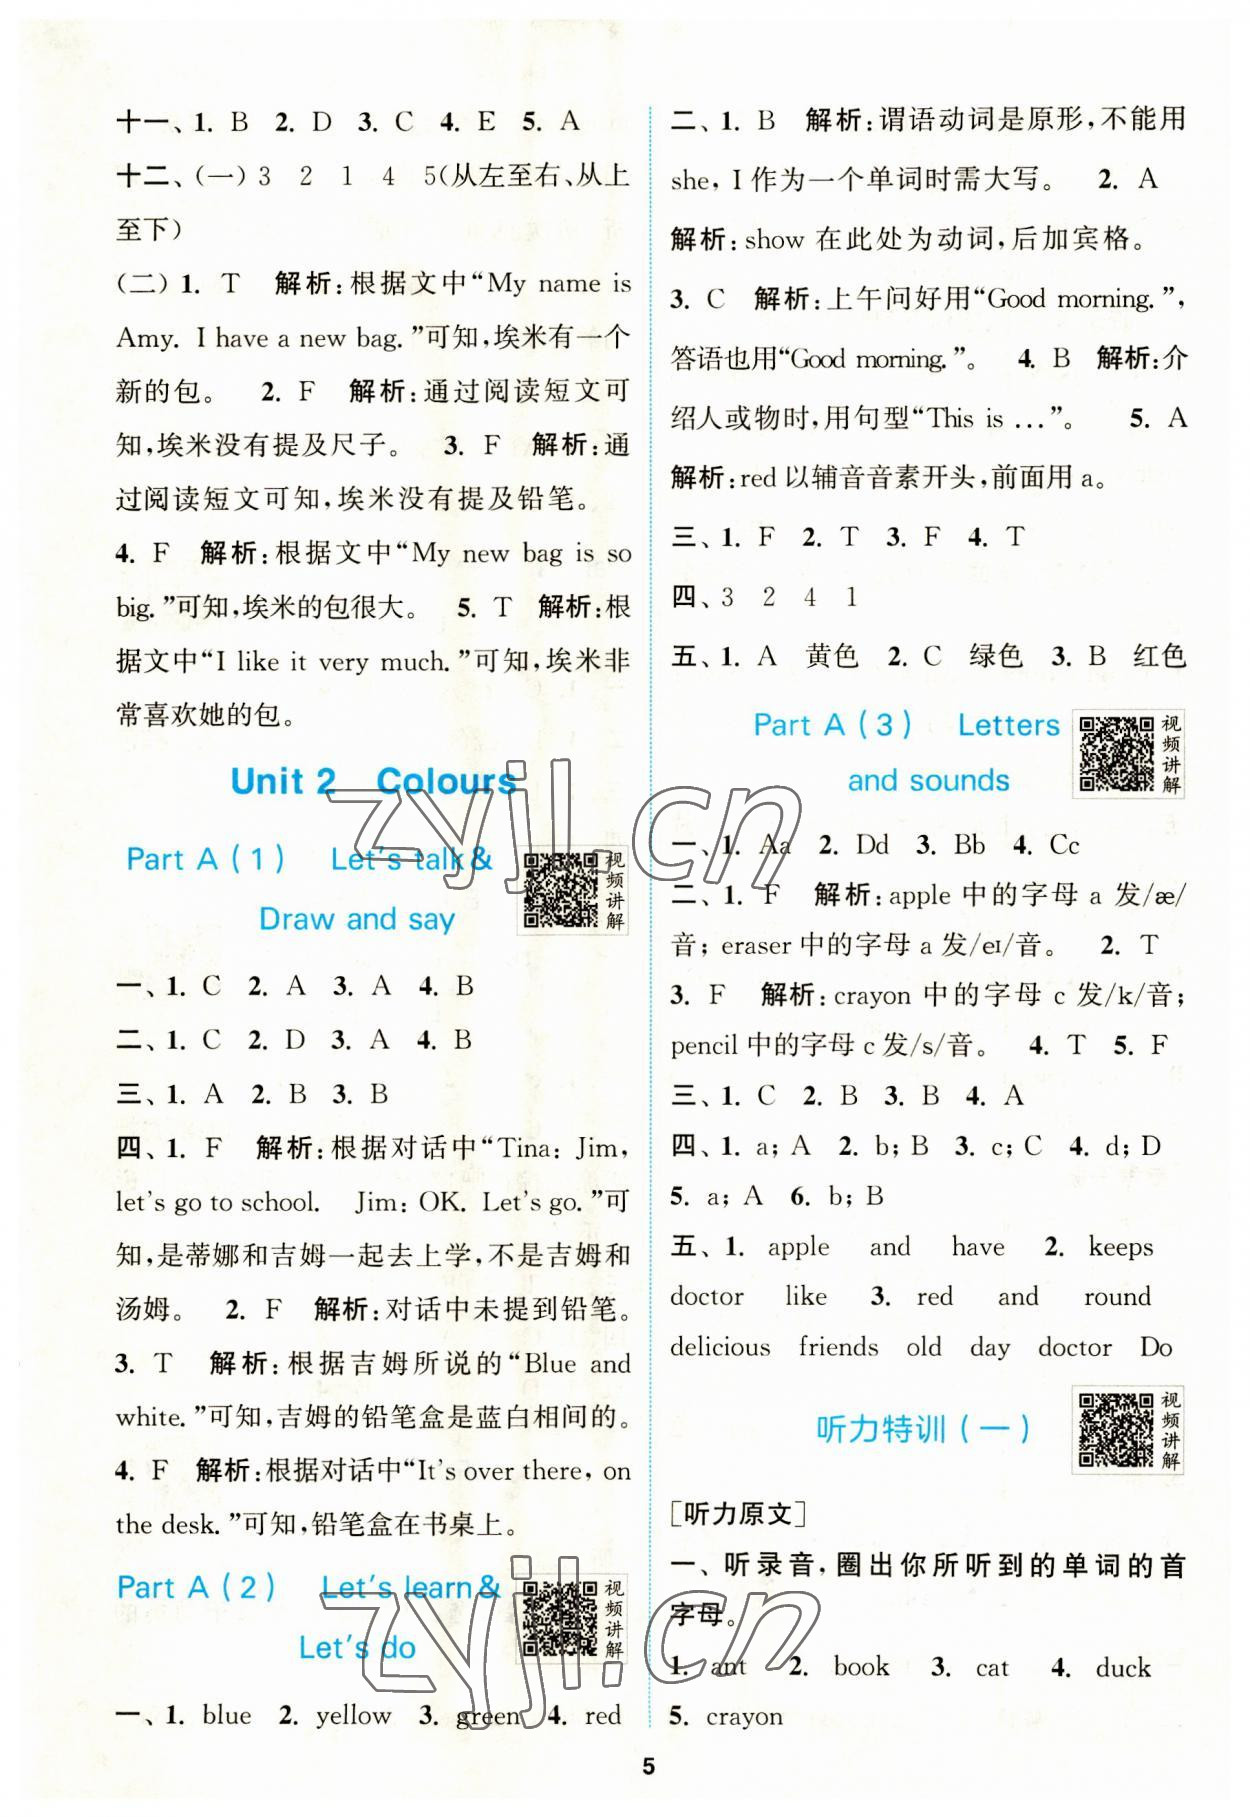 十一、1. B 2. D 3. C 4. E 5. A
十二、(一)3 2 1 4 5(从左至右、从上
至下)
(二)1. T 解析:根据文中“My name is
Amy. I have a new bag.”可知,埃米有一个
新的包。 2. F 解析:通过阅读短文可
知,埃米没有提及尺子。 3. F 解析:通
过阅读短文可知,埃米没有提及铅笔。
4. F 解析:根据文中“My new bag is so
big.”可知,埃米的包很大。 5. T 解析:根
据文中“I like it very much.”可知,埃米非
常喜欢她的包。
Unit 2 Colours
Part A(1) Let's talk &
Draw and say
视频讲解
一、1. C 2. A 3. A 4. B
二、1. C 2. D 3. A 4. B
三、1. A 2. B 3. B
四、1. F 解析:根据对话中“Tina: Jim,
let's go to school. Jim: OK. Let's go.”可
知,是蒂娜和吉姆一起去上学,不是吉姆和
汤姆。 2. F 解析:对话中未提到铅笔。
3. T 解析:根据吉姆所说的“Blue and
white.”可知,吉姆的铅笔盒是蓝白相间的。
4. F 解析:根据对话中“It's over there, on
the desk.”可知,铅笔盒在书桌上。
Part A(2) Let's learn &
Let's do
视频讲解
一、1. blue 2. yellow 3. green 4. red
二、1. B 解析:谓语动词是原形,不能用
she, I 作为一个单词时需大写。 2. A
解析:show 在此处为动词,后加宾格。
3. C 解析:上午问好用“Good morning.”,
答语也用“Good morning.”。 4. B 解析:介
绍人或物时,用句型“This is ...”。 5. A
解析:red 以辅音音素开头,前面用 a。
三、1. F 2. T 3. F 4. T
四、3 2 4 1
五、1. A 黄色 2. C 绿色 3. B 红色
Part A(3) Letters
and sounds
视频讲解
一、1. Aa 2. Dd 3. Bb 4. Cc
二、1. F 解析:apple 中的字母 a 发/æ/
音;eraser 中的字母 a 发/eɪ/音。 2. T
3. F 解析:crayon 中的字母 c 发/k/音;
pencil 中的字母 c 发/s/音。 4. T 5. F
三、1. C 2. B 3. B 4. A
四、1. a; A 2. b; B 3. c; C 4. d; D
5. a; A 6. b; B
五、1. apple and have 2. keeps
doctor like 3. red and round
delicious friends old day doctor Do
听力特训(一)
视频讲解
[听力原文]
一、听录音,圈出你所听到的单词的首
字母。
1. ant 2. book 3. cat 4. duck
5. crayon
5
zyjl.cn
zyjl.cn